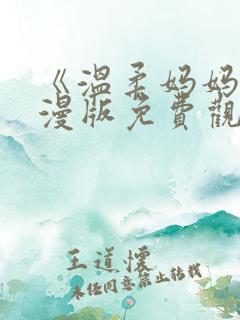 《溫柔妈妈
漫版免費觀
王道懷
未经同意禁止转载